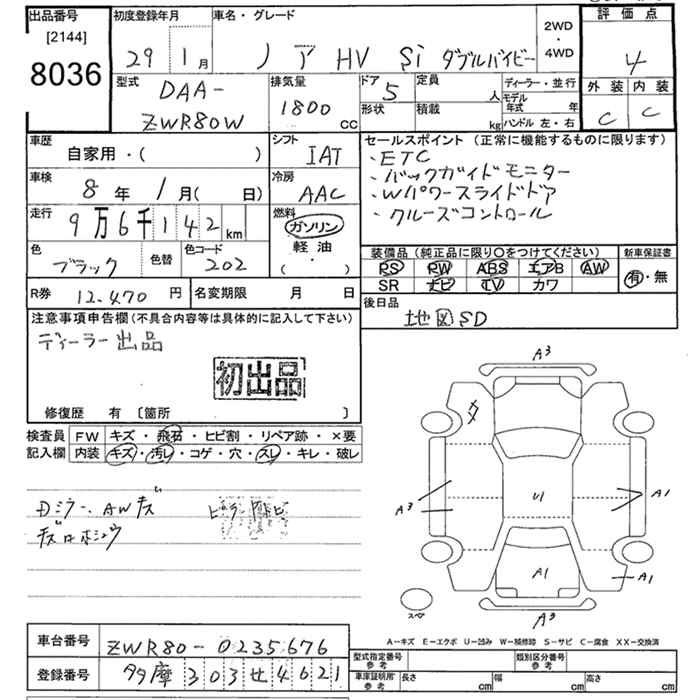 出品番号 初度登録年月 車名・グレード 2WD・4WD 評価点
[2144]
8036
29 1月 ノア HV Si ダブルバイビー 4
型式 排気量 ドア 定員 ディーラー・並行 外装 内装
DAA- 5 人 モデル年式 年 C C
ZWR80W 1800 CC 形状 積載 kg ハンドル 左・右
車歴 シフト セールスポイント(正常に機能するものに限ります)
自家用・( ) IAT ・ETC
・バックガイドモニター
車検 冷房 ・Wパワースライドドア
8年 1月( 日) AAC ・クルーズコントロール
走行 燃料
9万6千142km ガソリン
軽油
( ・ )
色 色替 色コード 装備品(純正品に限り○をつけてください) 新車保証書
ブラック 202 PS PW ABS エアB AW 有・無
SR ナビ TV カワ
R券 12.470円 名変期限 月 日 後日品
地図SD
注意事項申告欄(不具合内容等は具体的に記入して下さい)
ディーラー出品
初出品
修復歴 有 〔箇所 〕
検査員記入欄 FW キズ・飛石・ヒビ割・リペア跡・×要
内装 キズ・汚レ・コゲ・穴・スレ・キレ・破レ
Dミラー、AWキズ
A3
A3
U1
A1
A1
A1
A3
スペア
A-キズ E-エクボ U-凹み W-補修跡 S-サビ C-腐食 XX-交換済
車台番号 ZWR80-0235676
登録番号 多摩 303せ4621
型式指定番号 参考 類別区分番号 参考
車庫証明所 参考 長さ cm 幅 cm 高さ cm